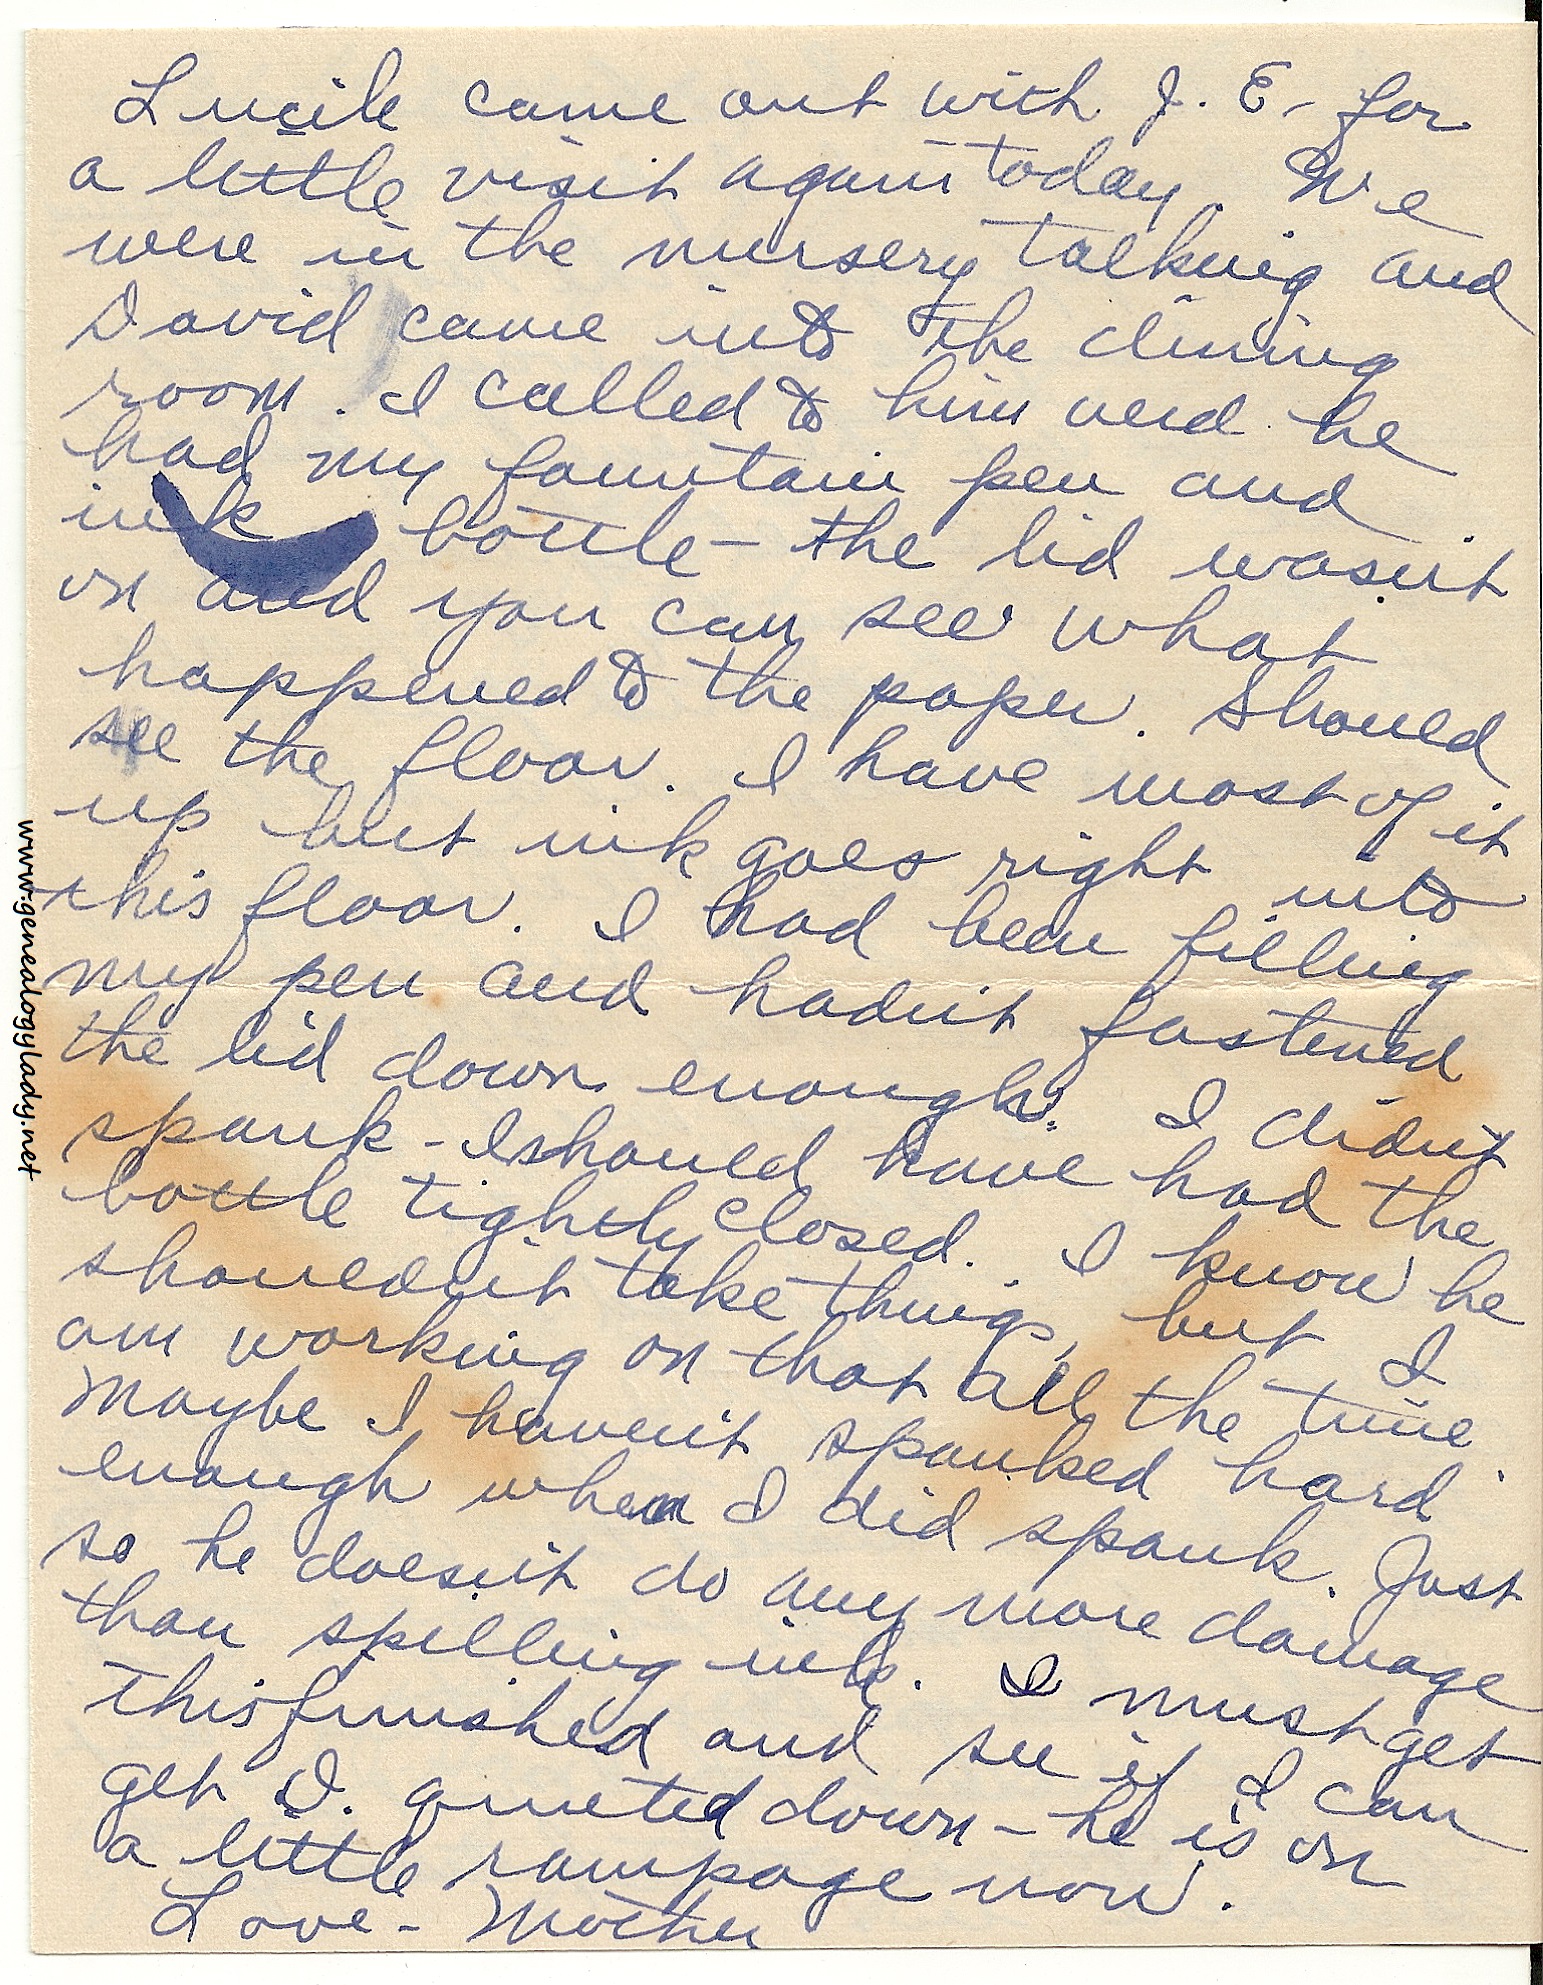 Lucile came out with J. E. for
a little visit again today. We
were in the nursery talking and
David came into the dining
room. I called to him and he
had my fountain pen and
ink bottle - the lid wasn't
on and you can see what
happened to the paper. Should
see the floor. I have most of it
up but ink goes right into
this floor. I had been filling
my pen and hadn't fastened
the lid down enough. I didn't
spank - I should have had the
bottle tightly closed. I know he
shouldn't take things, but I
am working on that all the time
Maybe I haven't spanked hard
enough when I did spank. Just
so he doesn't do any more damage
than spilling ink. I must get
this finished and see if I can
get D. quieted down - he is on
a little rampage now.
Love - Mother
www.genealogylady.net